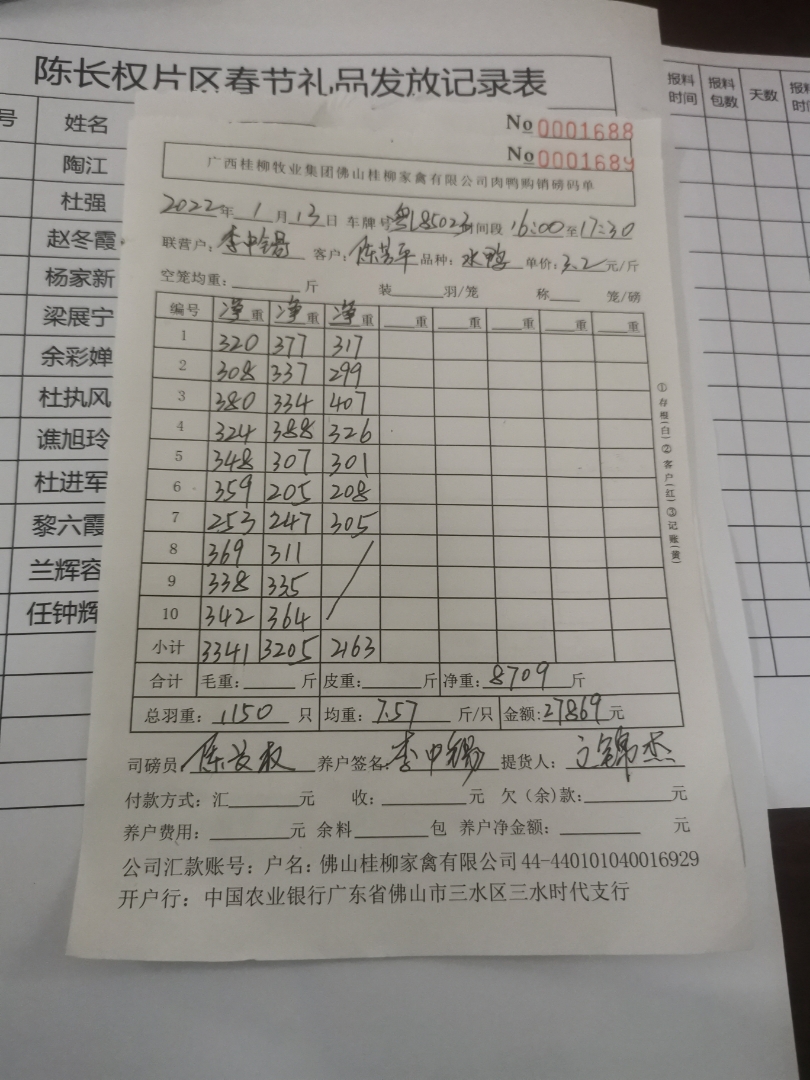 陈长权片区春节礼品发放记录表
号 姓名
陶江
杜强
赵冬霞
杨家新
梁展宁
余彩婵
杜执风
谯旭玲
杜进军
黎六霞
兰辉容
任钟辉
报料时间 报料包数 天数 报料
No 0001688
No 0001689
广西桂柳牧业集团佛山桂柳家禽有限公司肉鸭购销磅码单
2022年1月13日 车牌号粤L85023 时间段16:00至17:30
联营户:李中锡 客户:陈芳平 品种:水鸭 单价:3.2元/斤
空笼均重: 斤 装 羽/笼 称 笼/磅
编号 净重 净重 净重 重 重 重 重 重
1 320 377 317
2 308 337 299
3 380 334 407
4 324 388 326
5 348 307 301
6 359 205 208
7 253 247 305
8 369 311
9 338 335
10 342 364
小计 3341 3205 2163
合计 毛重: 斤 皮重: 斤 净重:8709斤
总羽重:1150只 均重:7.57斤/只 金额:27869元
司磅员:陈长权 养户签名:李中锡 提货人:锦杰
付款方式:汇 元 收: 元 欠(余)款: 元
养户费用: 元 余料 包 养户净金额: 元
公司汇款账号:户名:佛山桂柳家禽有限公司44-440101040016929
开户行:中国农业银行广东省佛山市三水区三水时代支行
①存根(白)②客户(红)③记账(黄)